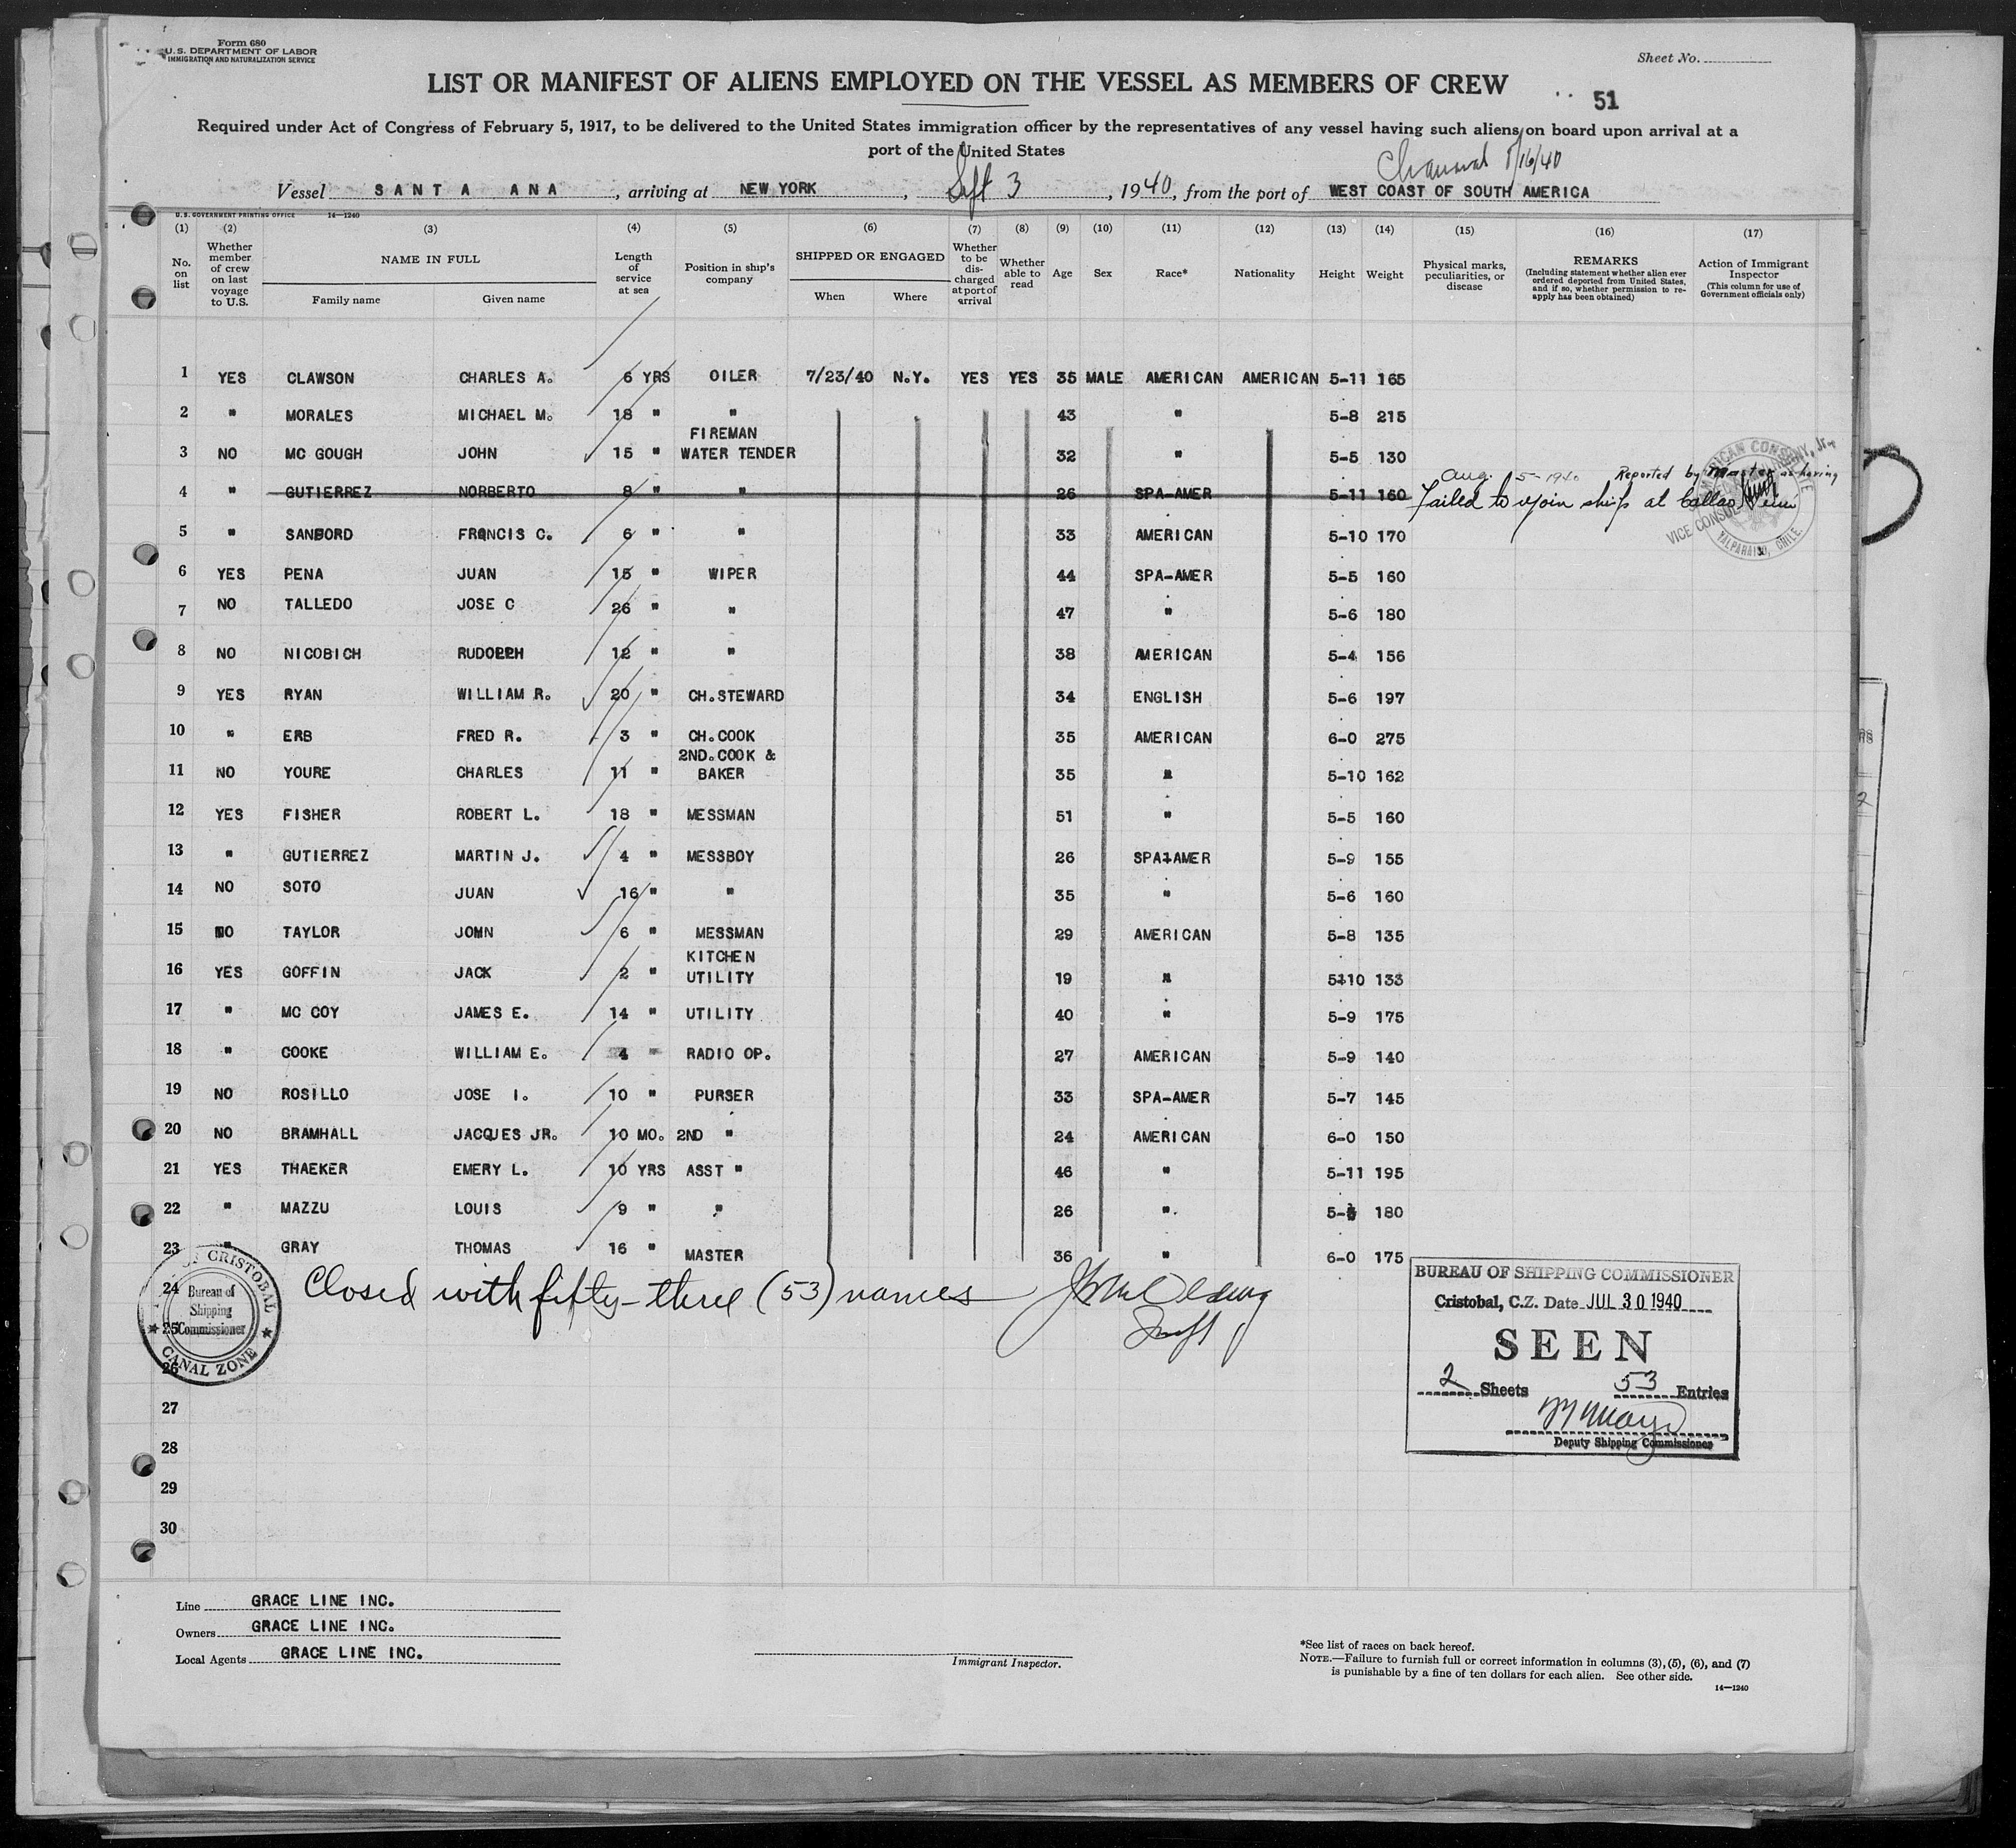 Form 680
U.S. DEPARTMENT OF LABOR
IMMIGRATION AND NATURALIZATION SERVICE
Sheet No.
LIST OR MANIFEST OF ALIENS EMPLOYED ON THE VESSEL AS MEMBERS OF CREW
51
Required under Act of Congress of February 5, 1917, to be delivered to the United States immigration officer by the representatives of any vessel having such aliens on board upon arrival at a
port of the United States
8/16/40
Vessel SANTA ANA, arriving at NEW YORK, Sept 3, 1940, from the port of WEST COAST OF SOUTH AMERICA
U.S. GOVERNMENT PRINTING OFFICE 14—1240
(1) (2) (3) (4) (5) (6) (7) (8) (9) (10) (11) (12) (13) (14) (15) (16) (17)
No. on list | Whether member of crew on last voyage to U.S. | NAME IN FULL Family name Given name | Length of service at sea | Position in ship's company | SHIPPED OR ENGAGED When Where | Whether to be discharged at port of arrival | Whether able to read | Age | Sex | Race* | Nationality | Height | Weight | Physical marks, peculiarities, or disease | REMARKS (Including statement whether alien ever ordered deported from United States, and if so, whether permission to reapply has been obtained) | Action of Immigrant Inspector (This column for use of Government officials only)
1 YES CLAWSON CHARLES A. 6 YRS OILER 7/23/40 N.Y. YES YES 35 MALE AMERICAN AMERICAN 5-11 165
2 " MORALES MICHAEL M. 18 " " 43 " 5-8 215
3 NO MC GOUGH JOHN 15 " FIREMAN WATER TENDER 32 " 5-5 130
4 " GUTIERREZ NORBERTO 8 " " 26 SPA-AMER 5-11 160 Aug. 5-1940 Reported by Master as having
failed to rejoin ship at Callao Peru
AMERICAN CONSUL
VICE CONSUL
VALPARAISO, CHILE
5 " SANFORD FRANCIS C. 6 " " 33 AMERICAN 5-10 170
6 YES PENA JUAN 15 " WIPER 44 SPA-AMER 5-5 160
7 NO TALLEDO JOSE C 26 " " 47 " 5-6 180
8 NO NICOBICH RUDOLPH 12 " " 38 AMERICAN 5-4 156
9 YES RYAN WILLIAM R. 20 " CH.STEWARD 34 ENGLISH 5-6 197
10 " ERB FRED R. 3 " CH.COOK 35 AMERICAN 6-0 275
11 NO YOURE CHARLES 11 " 2ND.COOK & BAKER 35 " 5-10 162
12 YES FISHER ROBERT L. 18 " MESSMAN 51 " 5-5 160
13 " GUTIERREZ MARTIN J. 4 " MESSBOY 26 SPA-AMER 5-9 155
14 NO SOTO JUAN 16 " " 35 " 5-6 160
15 NO TAYLOR JOHN 6 " MESSMAN 29 AMERICAN 5-8 135
16 YES GOFFIN JACK 2 " KITCHEN UTILITY 19 " 5-10 133
17 " MC COY JAMES E. 14 " UTILITY 40 " 5-9 175
18 " COOKE WILLIAM E. 4 " RADIO OP. 27 AMERICAN 5-9 140
19 NO ROSILLO JOSE I. 10 " PURSER 33 SPA-AMER 5-7 145
20 NO BRAMHALL JACQUES JR. 10 MO. 2ND " 24 AMERICAN 6-0 150
21 YES THAEKER EMERY L. 10 YRS ASST " 46 " 5-11 195
22 " MAZZU LOUIS 9 " " 26 " 5- 180
23 " GRAY THOMAS 16 " MASTER 36 " 6-0 175
24 Closed with fifty-three (53) names
25
26
27
28
29
30
OF CRISTOBAL
Bureau of
Shipping
Commissioner
CANAL ZONE
BUREAU OF SHIPPING COMMISSIONER
Cristobal, C.Z. Date JUL 30 1940
SEEN
2 Sheets 53 Entries
Deputy Shipping Commissioner
Line GRACE LINE INC.
Owners GRACE LINE INC.
Local Agents GRACE LINE INC.
Immigrant Inspector.
*See list of races on back hereof.
NOTE.—Failure to furnish full or correct information in columns (3), (5), (6), and (7)
is punishable by a fine of ten dollars for each alien. See other side.
14—1240